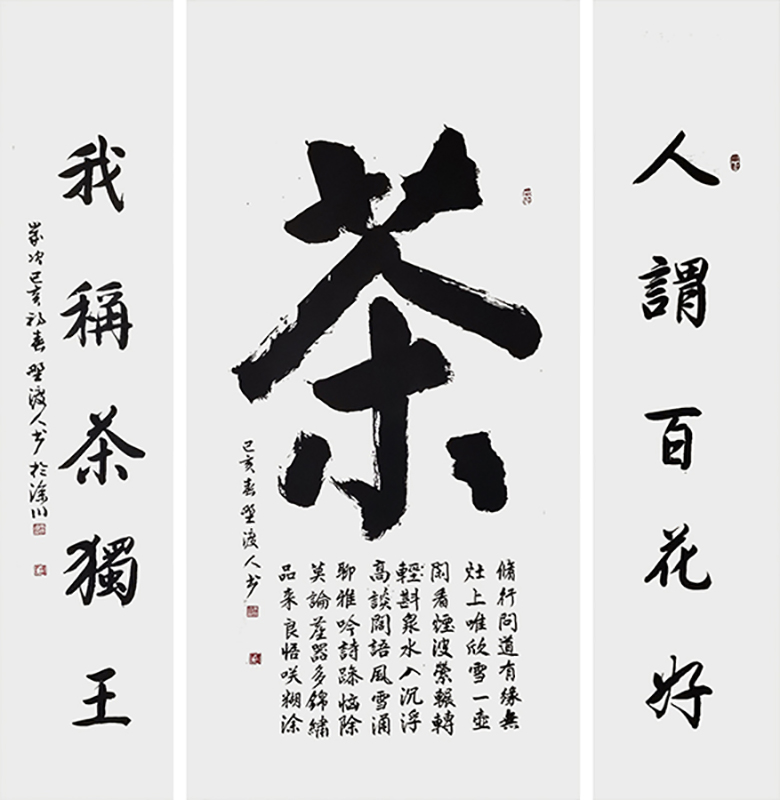 人謂百花好
茶
脩行問道有緣無
灶上唯欣雪一壺
閑看煙波縈輾轉
輕斟泉水入沉浮
高談闊語風雪涌
聊雅吟詩踈惱除
笑論器多錦繡
品来良悟咲糊涂
己亥春埜渡人书
我稱茶獨王
嵗次己亥初春埜渡人书於涂川